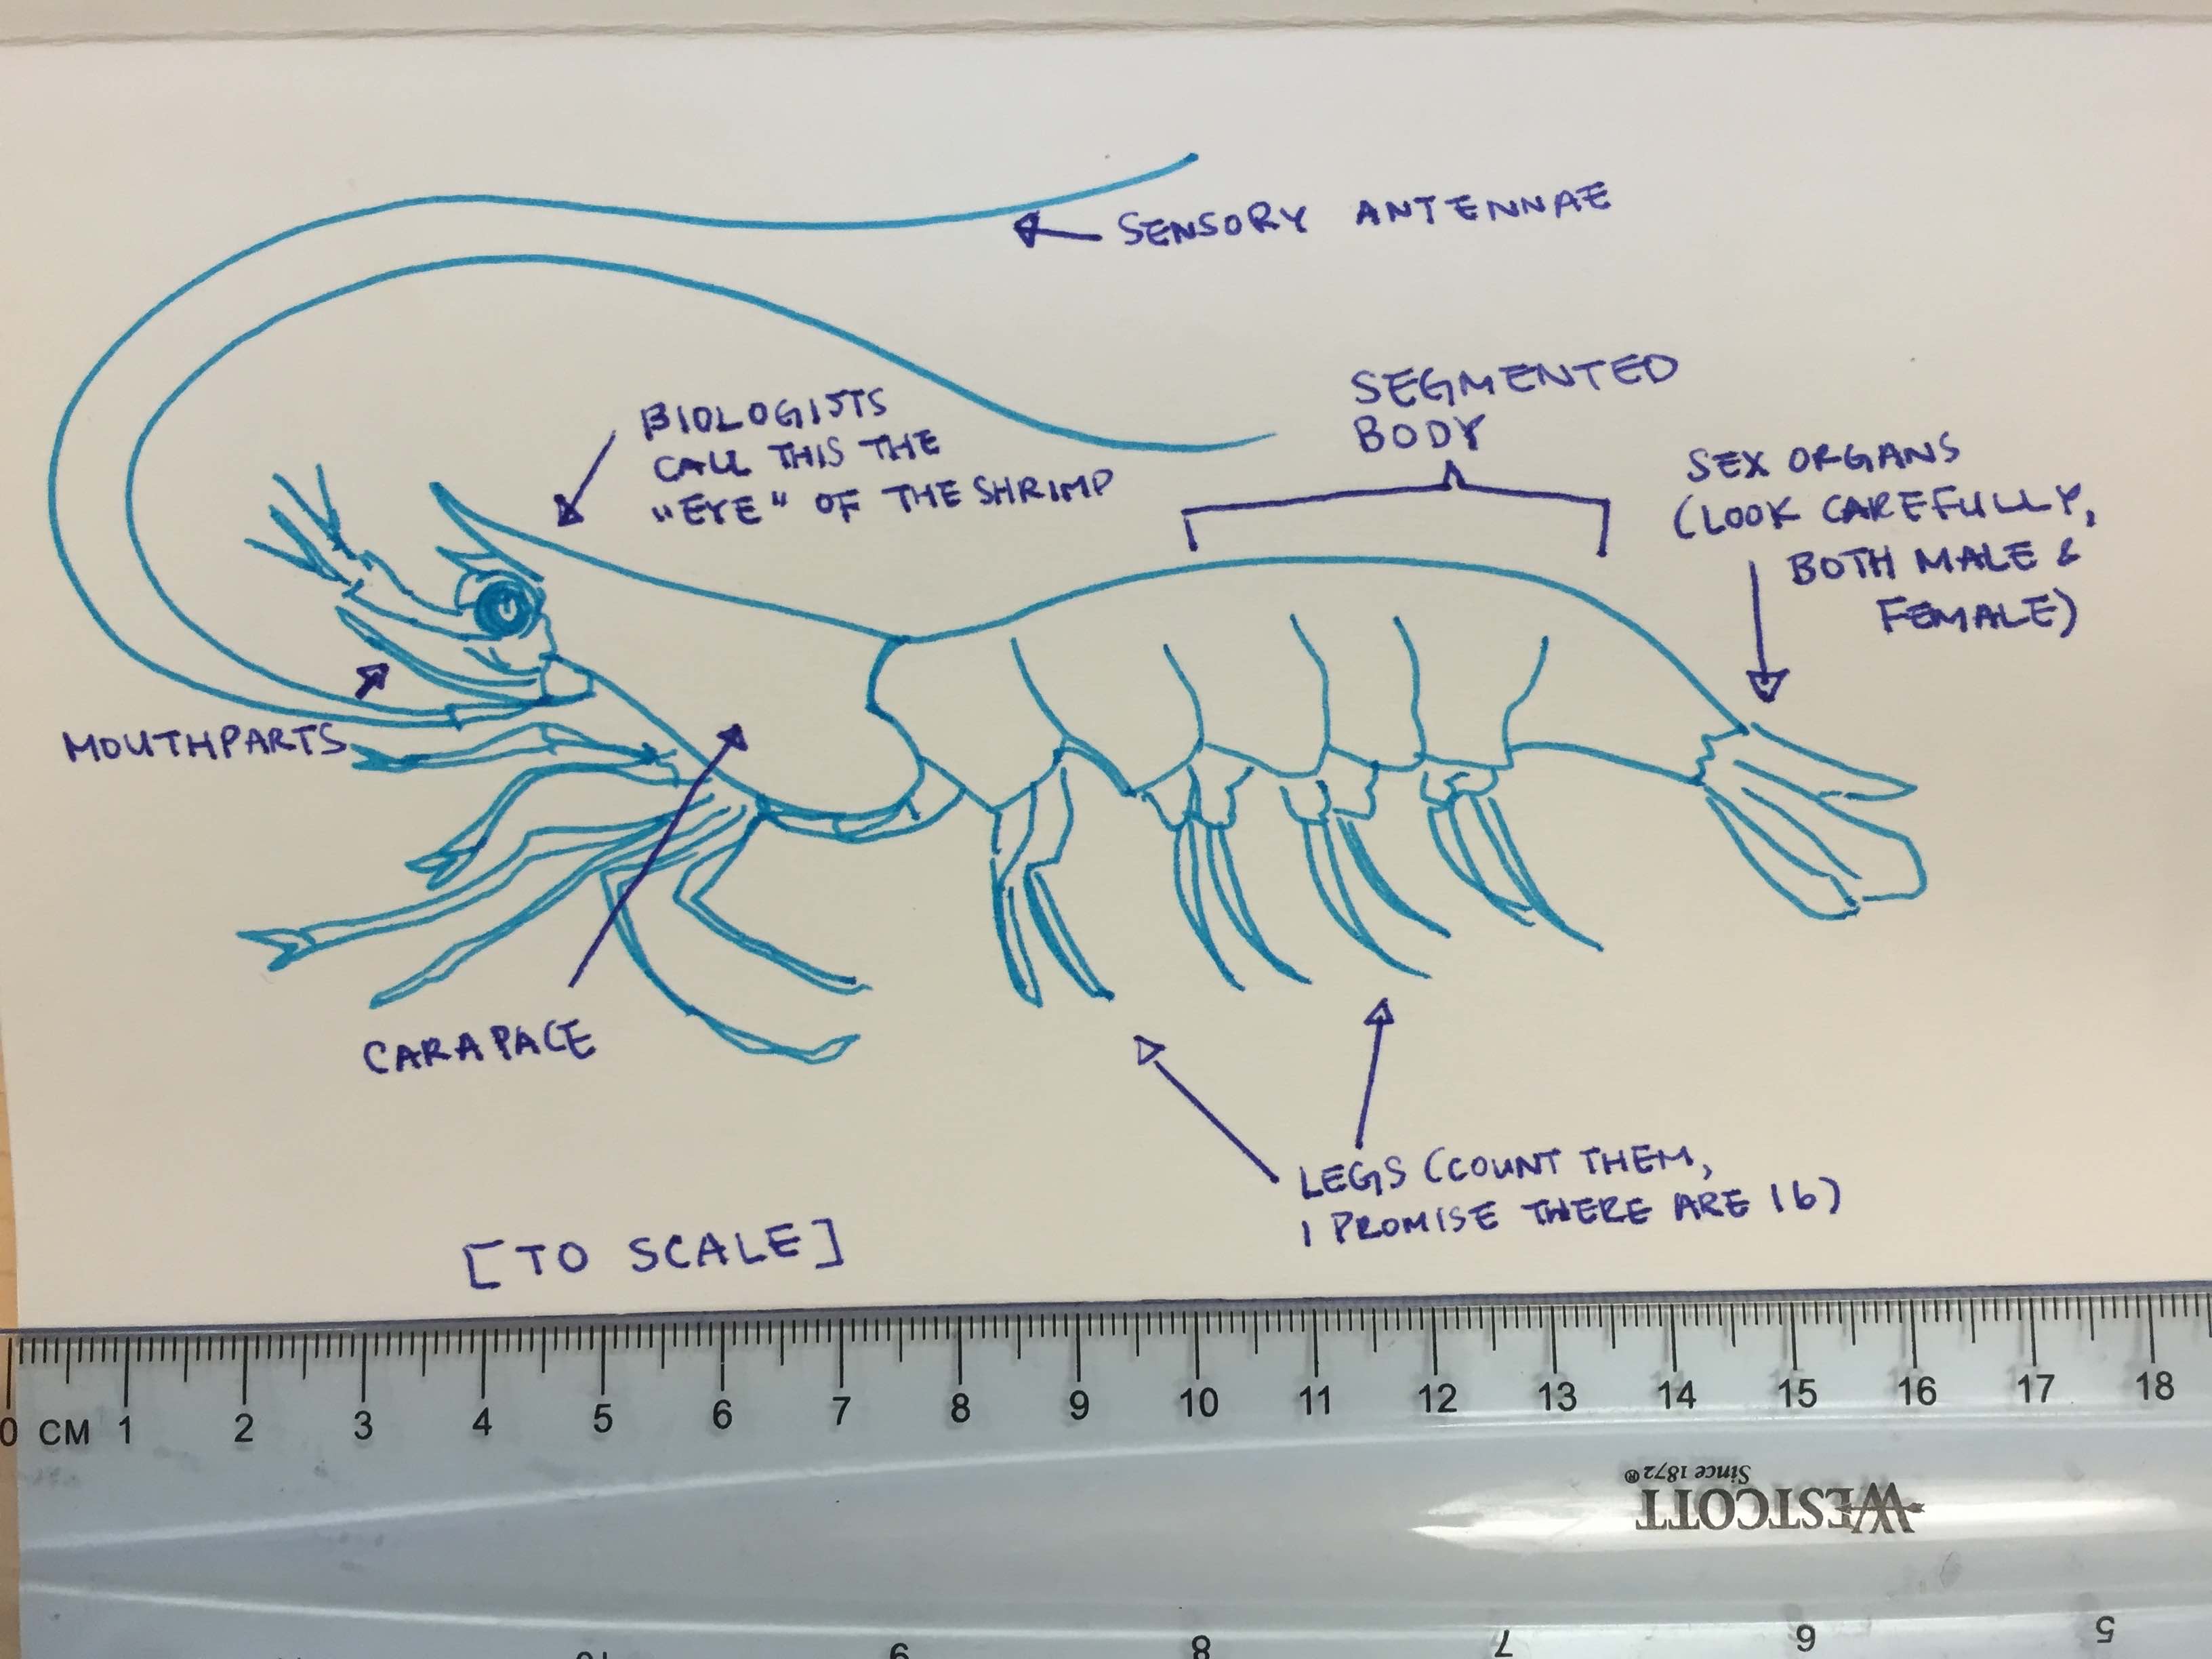 SENSORY ANTENNAE
BIOLOGISTS
CALL THIS THE
"EYE" OF THE SHRIMP
SEGMENTED
BODY
SEX ORGANS
(LOOK CAREFULLY,
BOTH MALE &
FEMALE)
MOUTHPARTS
CARAPACE
LEGS (COUNT THEM,
I PROMISE THERE ARE 16)
[TO SCALE]
0 CM 1 2 3 4 5 6 7 8 9 10 11 12 13 14 15 16 17 18
WESTCOTT
Since 1872®
10 9 8 7 6 5